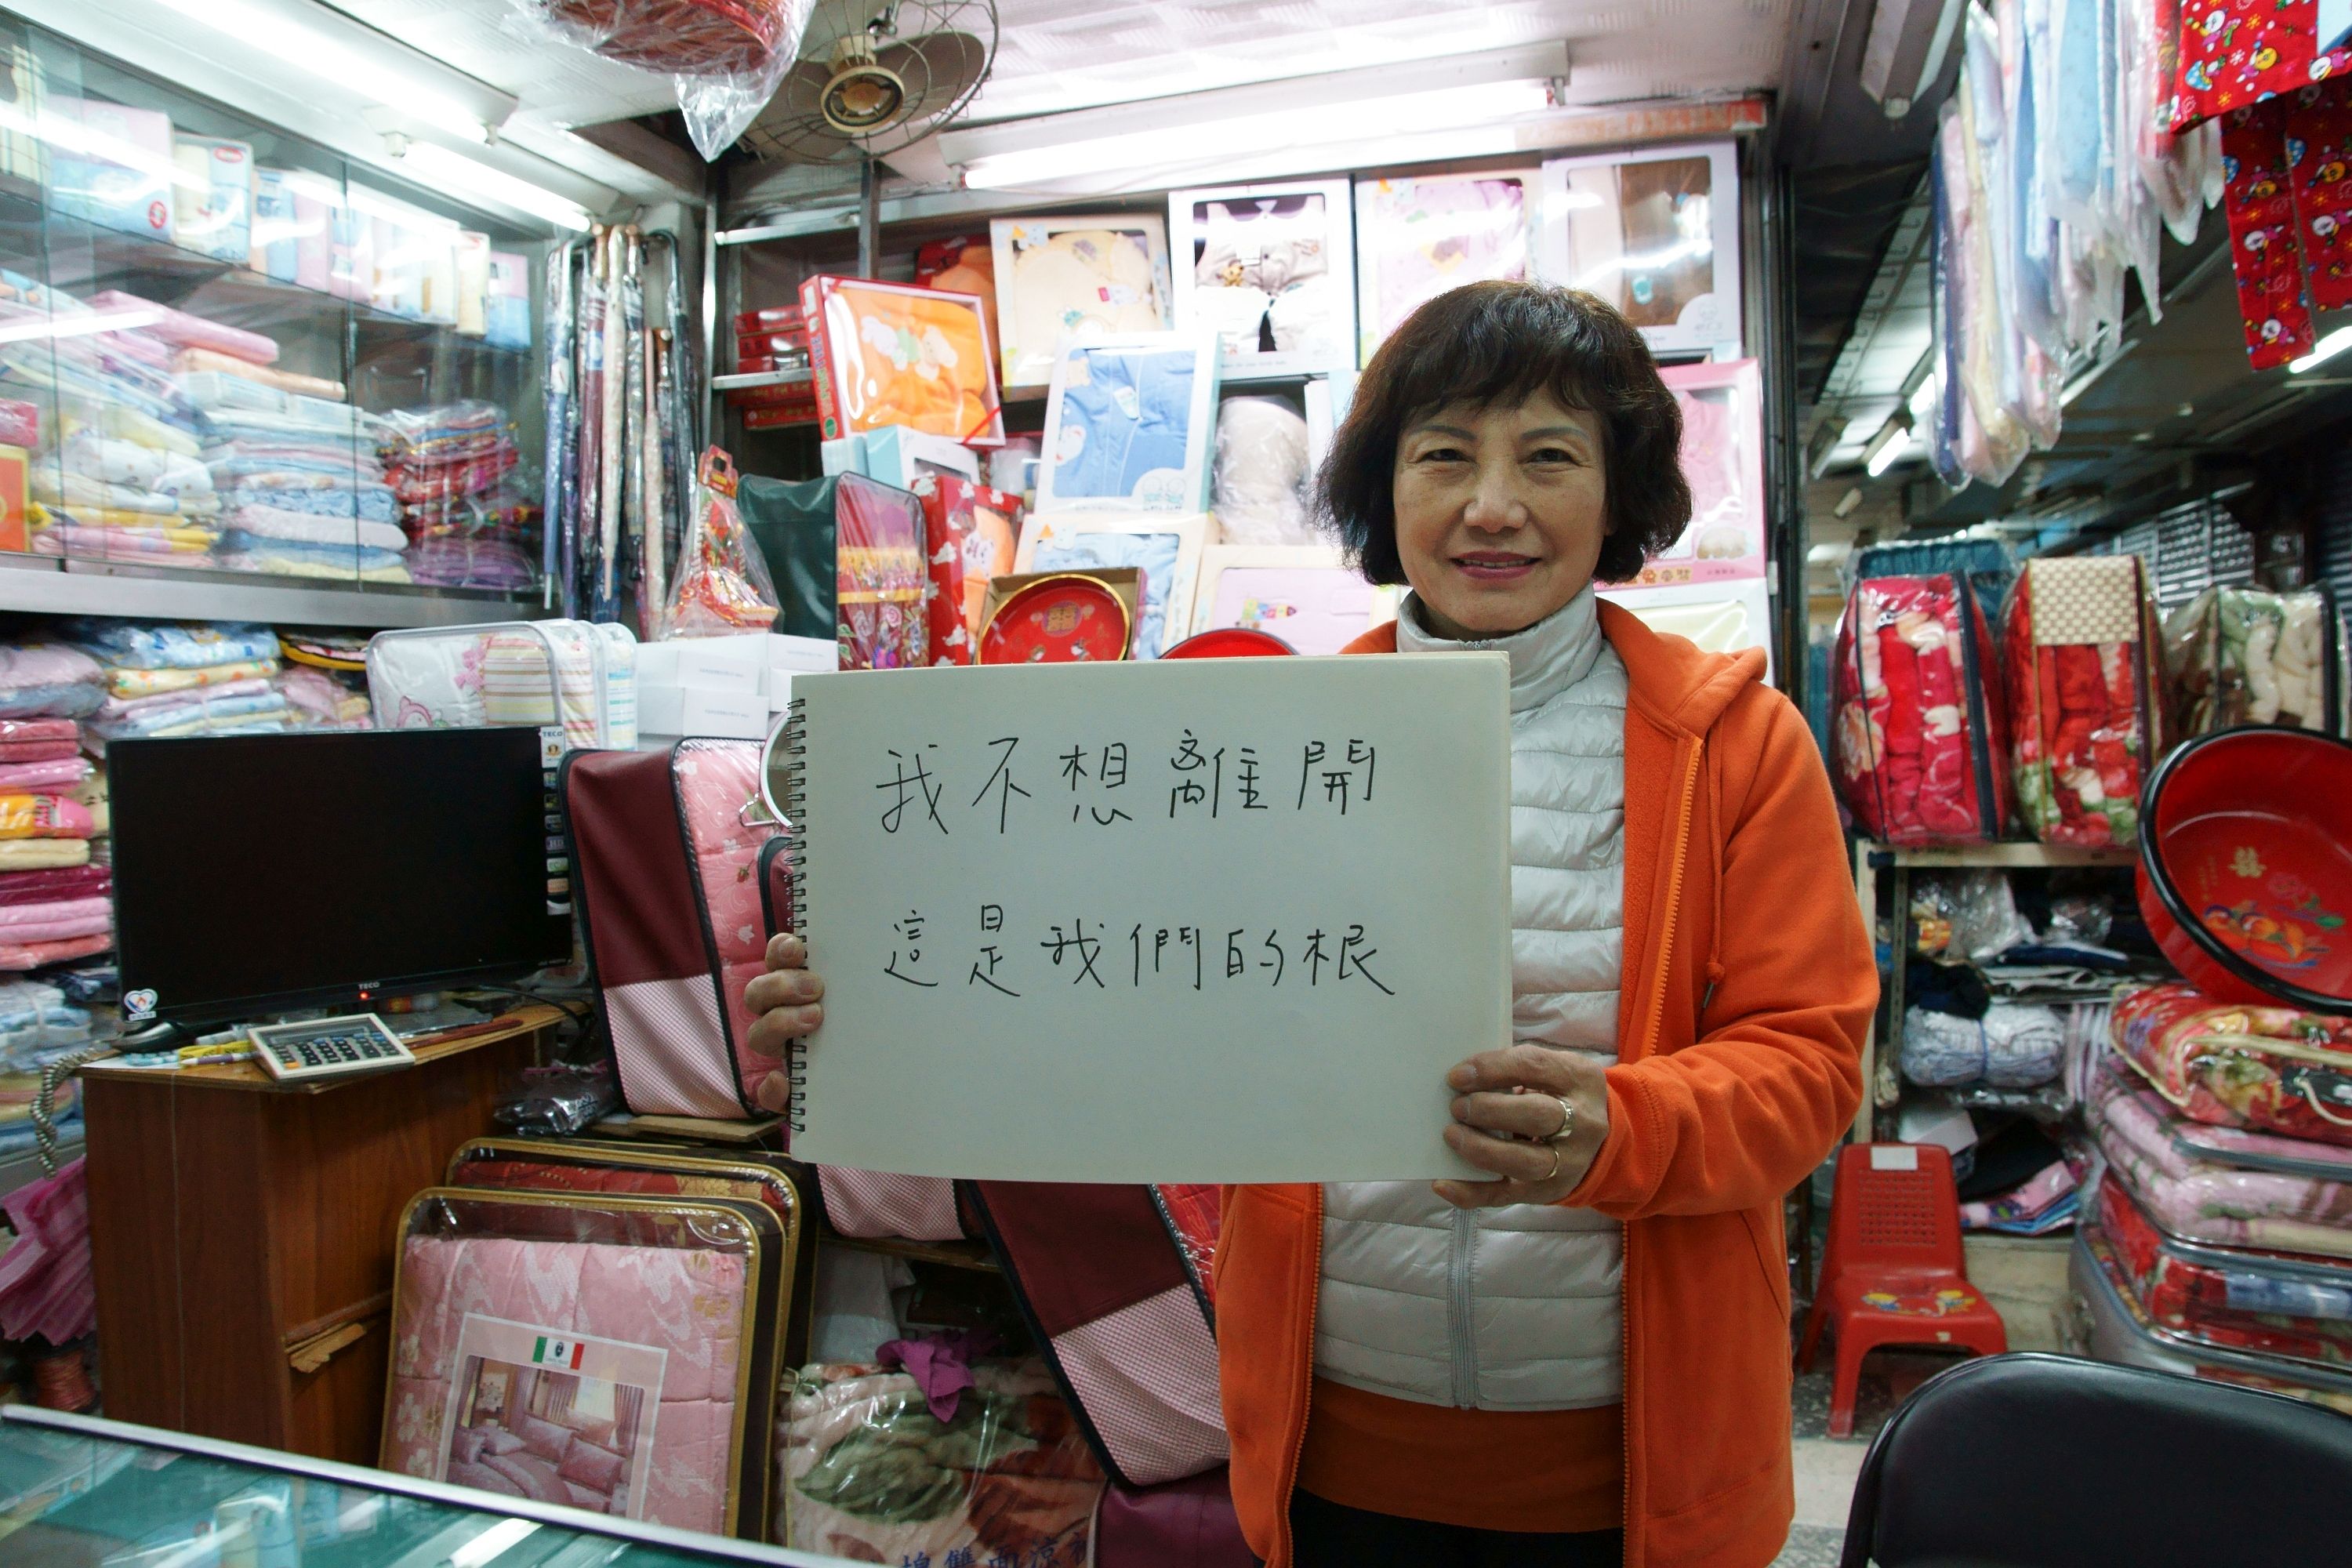 我不想離開
這是我們的根
TECO
TECO